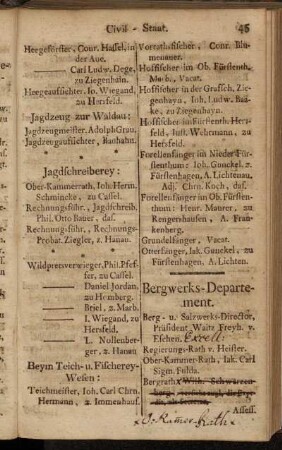 Civil-Staat. 45
Heegeförster, Conr. Hassel, in
der Aue.
—— Carl Ludw. Dege,
zu Ziegenhain.
Heegeaufsichter, Jo. Wiegand,
zu Hersfeld.
Jagdzeug zur Waldau:
Jagdzeugmeister, Adolph Grau.
Jagdzeugaufsichter, Bauhahn.
* * *
Jagdschreiberey:
Ober-Kammerrath, Joh. Herm.
Schmincke, zu Cassel.
Rechnungsführ., Jagdschreib.
Phil. Otto Bauer, das.
Rechnungsführ., Rechnungs-
Probat. Ziegler, z. Hanau.
* * *
Wildpretsverwieger, Phil. Pfef-
fer, zu Cassel.
—— Daniel Jordan,
zu Homberg.
—— Briel, z. Marb.
—— I. Wiegand, zu
Hersfeld.
—— L. Nollenber-
ger, z. Hanau
Beym Teich- u. Fischerey-
Wesen:
Teichmeister, Joh. Carl Chrn.
Hermann, z. Immenhauf.
Vorrathsfischer, Conr. Blu-
menauer.
Hoffischer im Ob. Fürstenth.
Marb., Vacat.
Hoffischer in der Grafsch. Zie-
genhayn, Joh. Ludw. Baa-
ke, zu Ziegenhayn.
Hoffischer im Fürstenth. Hers-
feld, Just. Wehrmann, zu
Hersfeld.
Forellenfänger im Nieder Für-
stenthum: Joh. Gunckel, z.
Fürstenhagen, A. Lichtenau,
Adj. Chrn. Koch, das.
Forellenfänger im Ob. Fürsten-
thum: Henr. Maurer, zu
Rengershausen, A. Fran-
kenberg.
Grundelfänger, Vacat.
Otterfänger, Jak. Gunckel, zu
Fürstenhagen, A. Lichten.
Bergwerks-Departe-
ment.
Berg- u. Salzwerks-Director,
Präsident Waitz Freyh. v.
Eschen, Excell:
Regierungs-Rath v. Heister.
Ober-Kammer-Rath, Jak. Carl
Sigm. Fulda.
Bergrath x Wilh. Schwarzen-
berg
Assess.
x Ob. Kamer Rath x